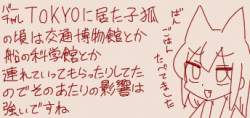 バーチャルTOKYOに居た子狐
の頃は交通博物館とか
船の科学館とか
連れていってもらったりしてた
のでそのあたりの影響は
強いですね
ばんごはん
たべてきまった